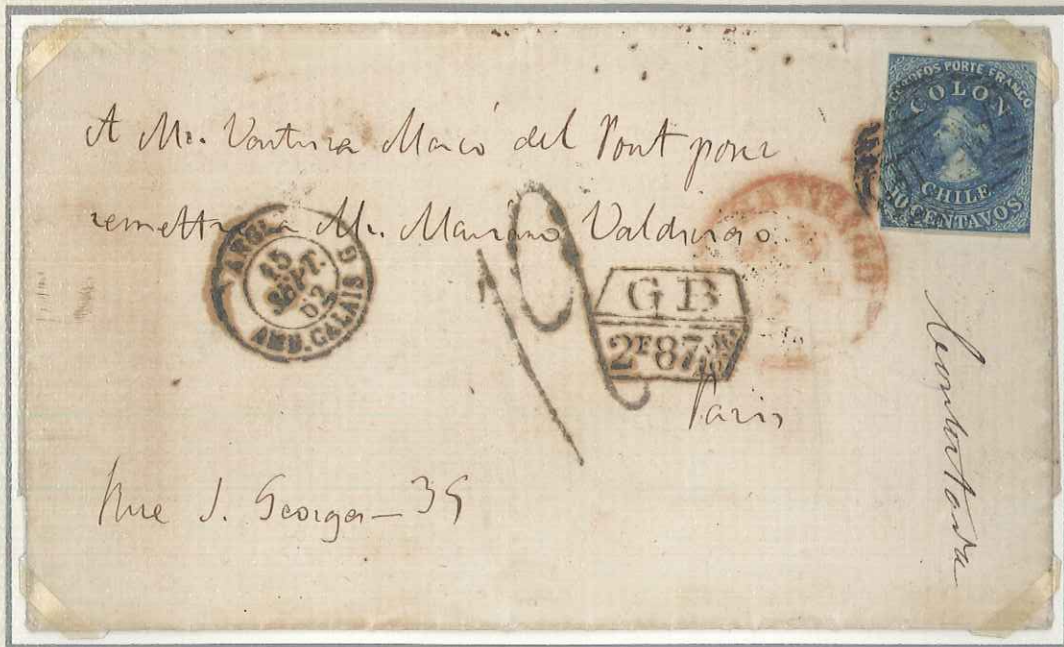 CORREOS PORTE FRANCO
COLON
CHILE
10 CENTAVOS
A Mr. Ventura Marcó del Pont pour
remettre a Mr. Mariano Valdivieso
ANGL.
15
SEPT.
62
AMB. CALAIS G
SANTIAGO
GB
2F87
Paris
Rue S. Georges - 35
Contestada